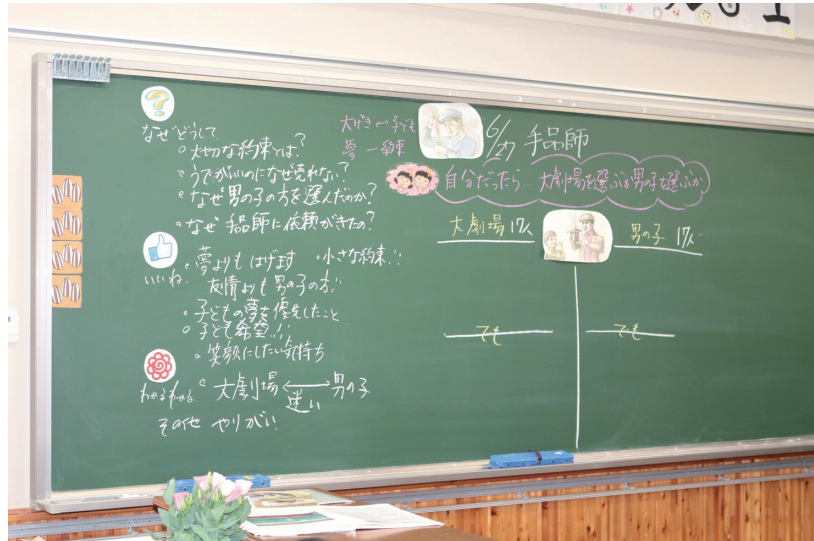 なぜどうして
・大切な約束とは?
・うでがいいのになぜ売れない?
・なぜ男の子の方を選んだのか?
・なぜ手品師に依頼がきたの?
いいね
・夢よりもはげます ・小さな約束!!
友情よりも男の子の方!!
・子どもの夢を優先したこと
・子ども希望!!
・笑顔にしたい気持ち
わかるわかる
・大劇場⟷男の子
迷い
その他 やりがい
大げき ↔ 子ども
夢 ー 約束
6/27 手品師
自分だったら…大劇場を選ぶか男の子を選ぶか
大劇場 17人
男の子 17人
でも
でも